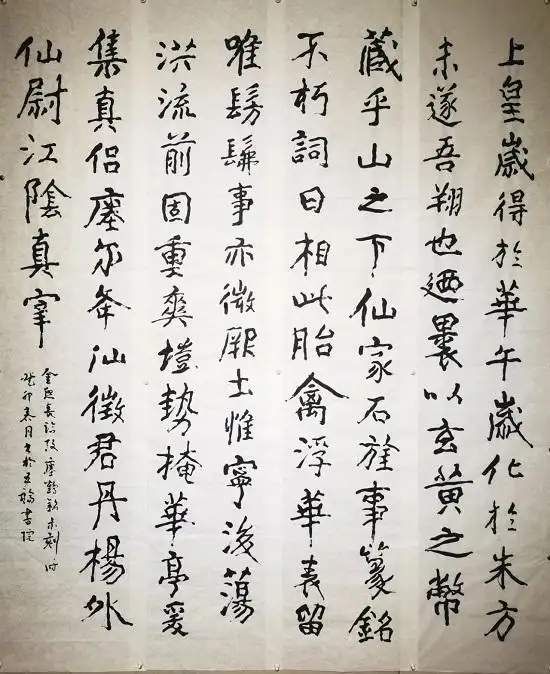 上皇歲得於華午歲化於朱方
未遂吾翔也迺裹以玄黃之幣
藏乎山之下仙家石旌事篆銘
不朽詞曰相此胎禽浮華表留
唯髣髴事亦微厥土惟寧後蕩
洪流前固重爽塏勢掩華亭爰
集真侶瘞尔夅汕徵君丹楊外
仙尉江陰真宰
瘞鶴銘
癸卯春月書院